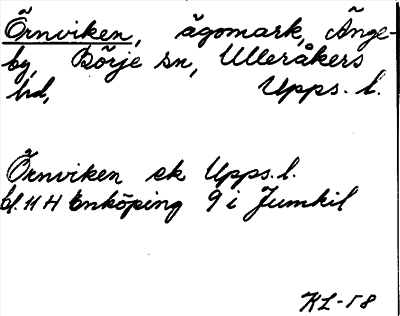 Örnviken, ägomark, Änge-
by, Börje sn, Ulleråkers
hd, Upps. l.
Örnviken ek Upps. l.
bl. 11 H Enköping 9 i Jumkil
KL-58